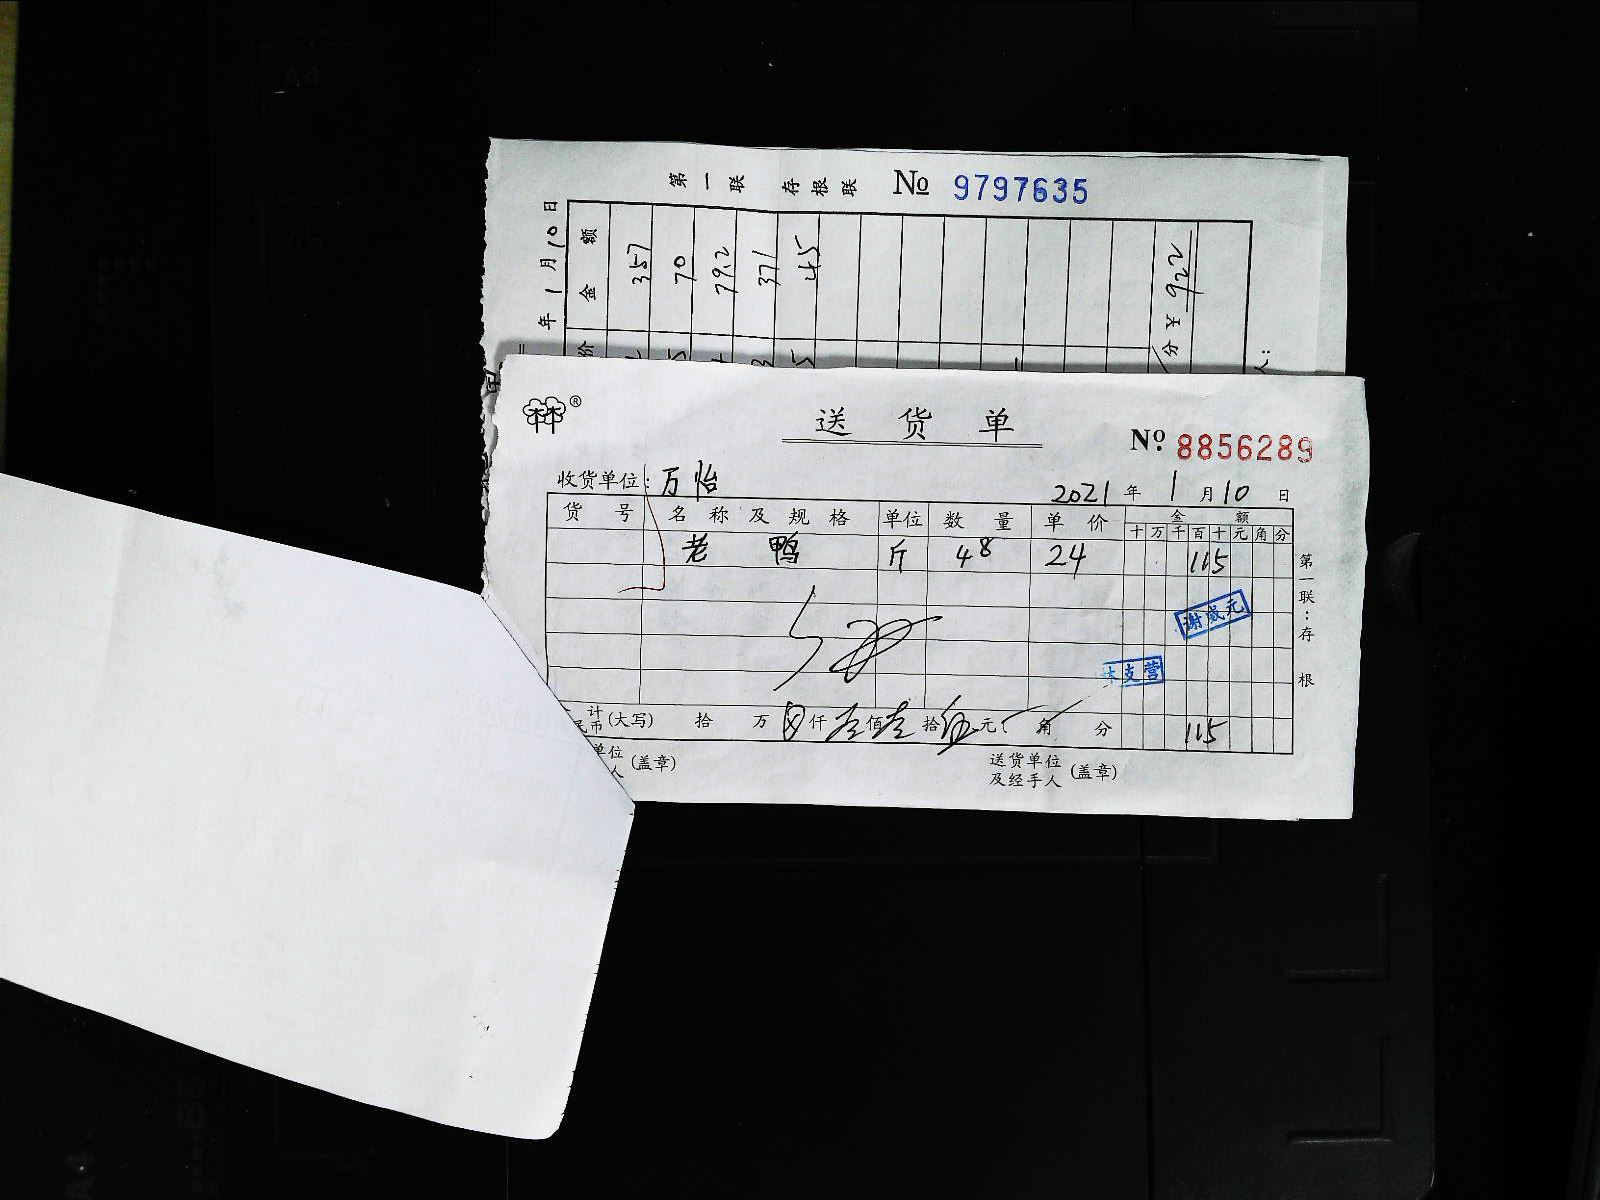 第一联 存根联 No 9797635
年 1月10日
金额
357
70
79.2
371
45
922
送货单
No. 8856289
收货单位: 万怡
2021年 1月10日
货号 名称及规格 单位 数量 单价 金额
十万千百十元角分
老鸭 斤 48 24 115
谢威元
支营
计
(大写) 拾 万 仟 壹佰壹拾伍元 角 分 115
单位
人 (盖章)
送货单位
及经手人 (盖章)
第一联:存根